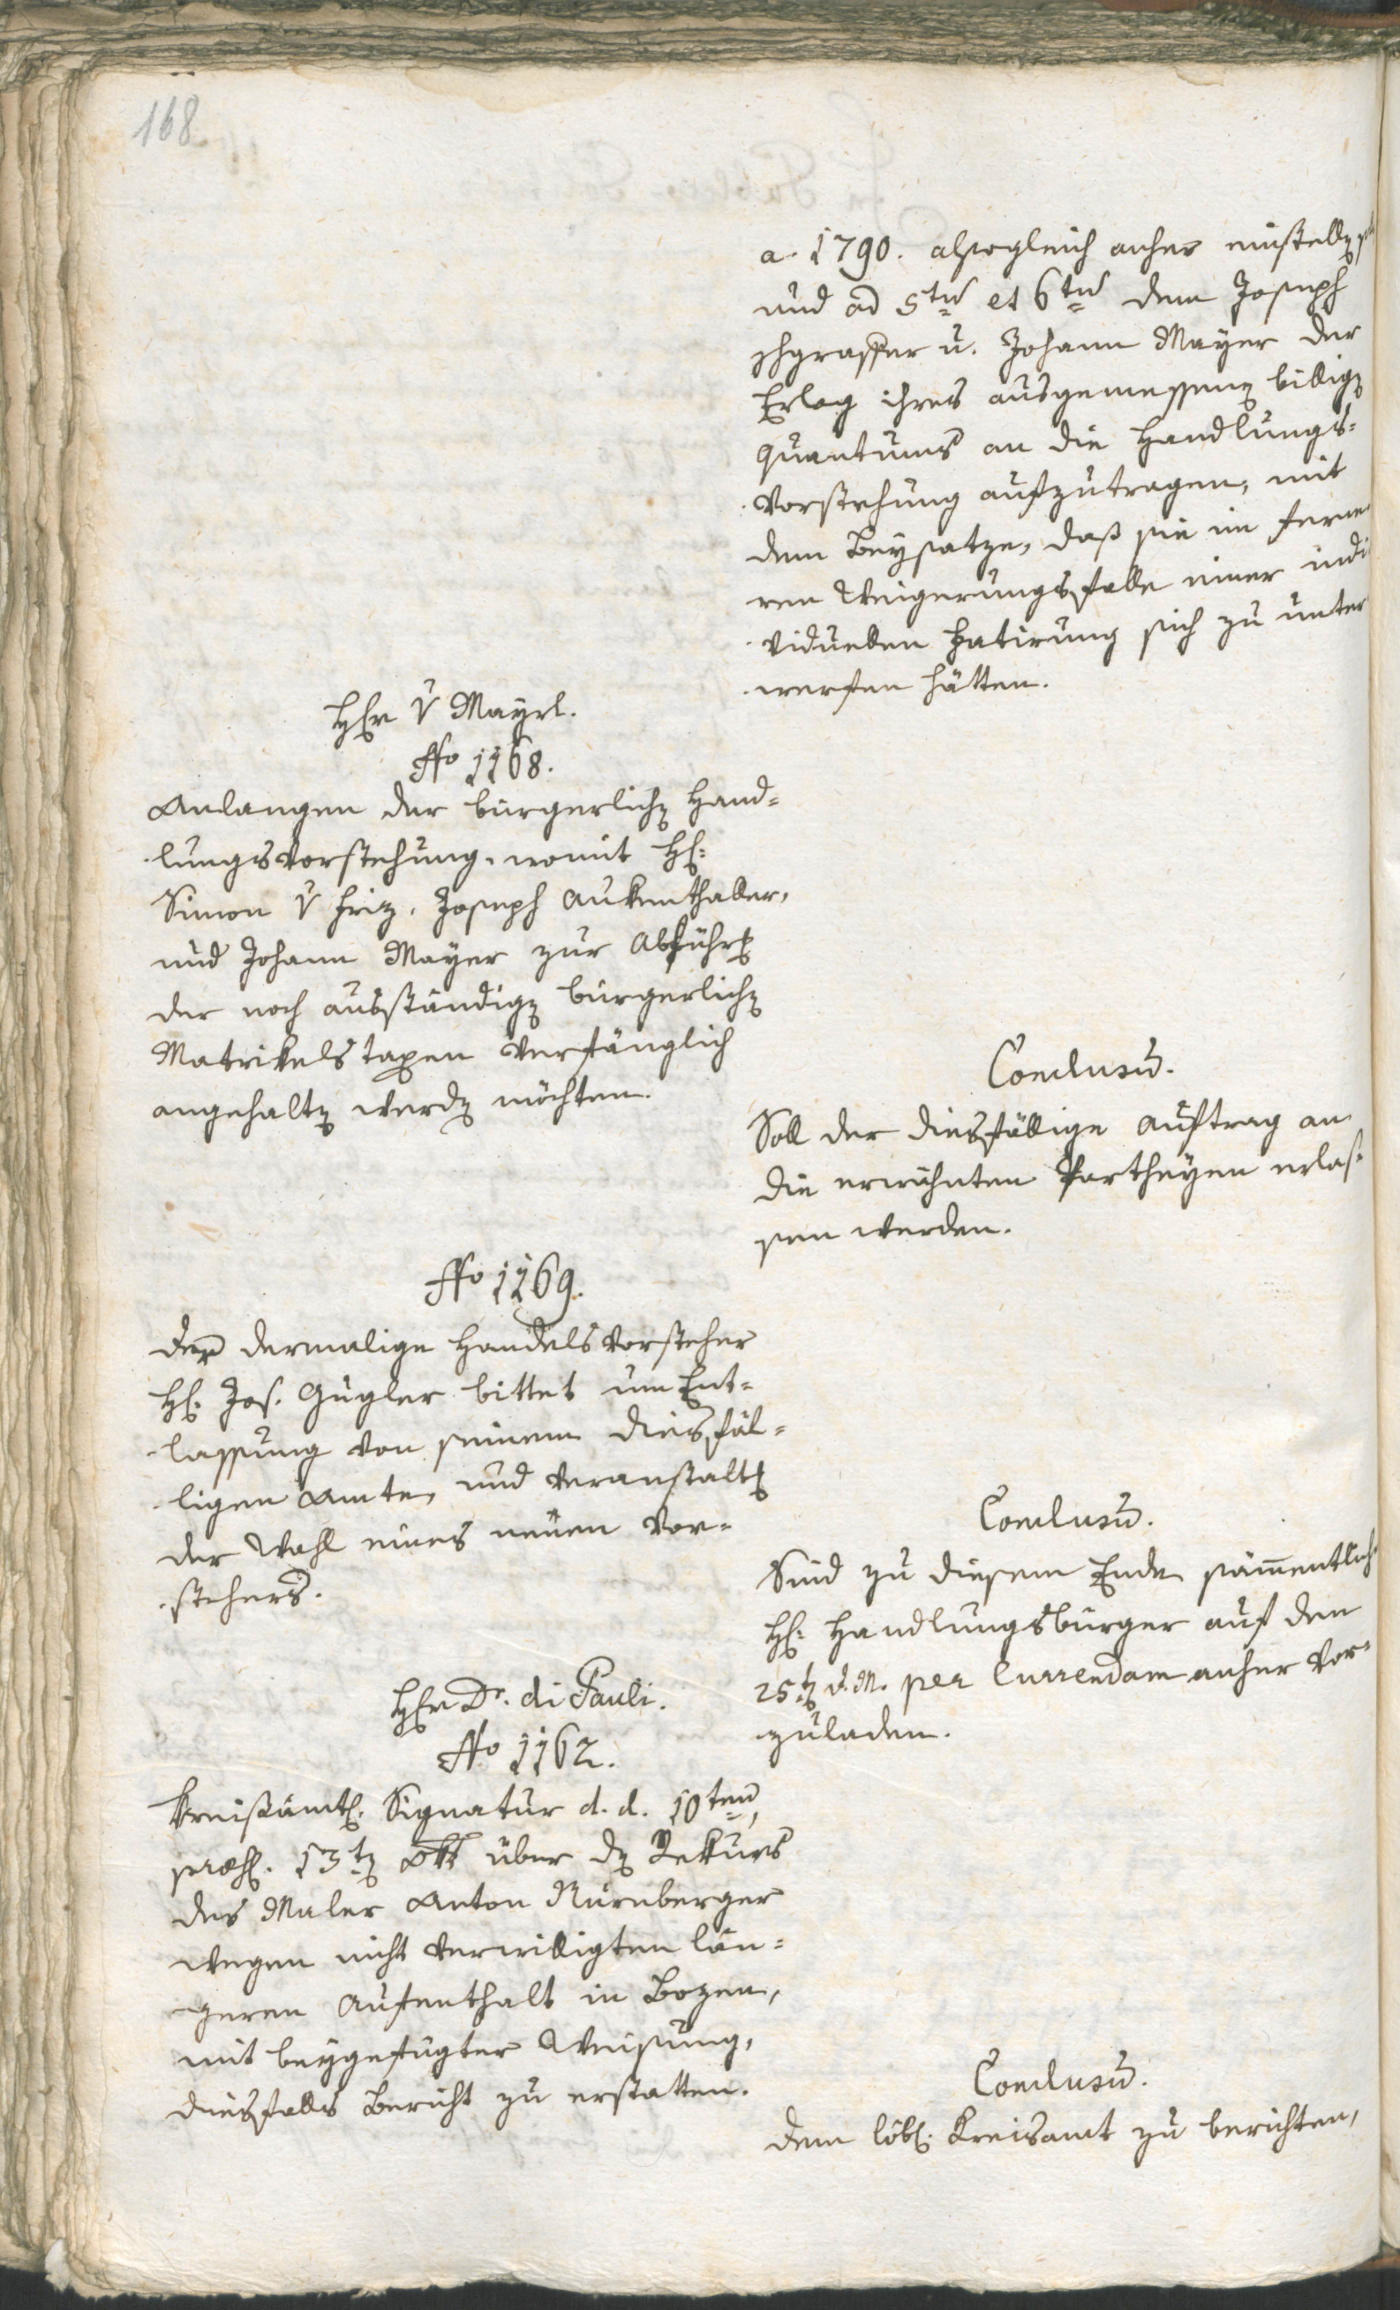 168
a. 1790. alsogleich anher einstell
und ad 5tū et 6tū dem Joseph
u. Johann Mayer der
Erlag ihres ausgemessenen billigen
Quantums an die Handlungs-
vorstehung aufzutragen, mit
dem Beysatze, daß sie im ferne
ren Weigerungsfalle einer indi
viduellen Fatirung sich zu unter
werfen hätten.
Herr v Mayrl.
No 1168.
Anlangen der bürgerlichen Hand-
lungsvorstehung, womit HH:
Simon v Friz, Joseph Aukenthaller,
und Johann Mayer zur Abführung
der noch ausständigen bürgerlichen
Matrikelstaxen verfänglich
angehalten werden möchten.
Conclusū.
Soll der diesfällige Auftrag an
die erwähnten Partheyen erlas-
sen werden.
No 1169.
Der dermalige Handelsvorsteher
H: Jos. Gugler bittet um Ent-
lassung von seinem diesfäl-
ligen Amte, und Veranstaltung
der Wahl eines neuen Vor-
stehers.
Conclusū.
Sind zu diesem Ende sämmentlich
HH: Handlungsbürger auf den
25ten d. M. per Currendam anher vor-
zuladen.
Herr Dr. di Pauli.
No 1162.
Kreisämtl. Signatur d. d. 10ten,
præs. 13ten Okt über den Rekurs
des Maler Anton Nürnberger
wegen nicht verwilligten län-
geren Aufenthalt in Bozen,
mit beygefügter Weisung,
diesfalls Bericht zu erstatten.
Conclusū.
Dem löbl. Kreisamt zu berichten,